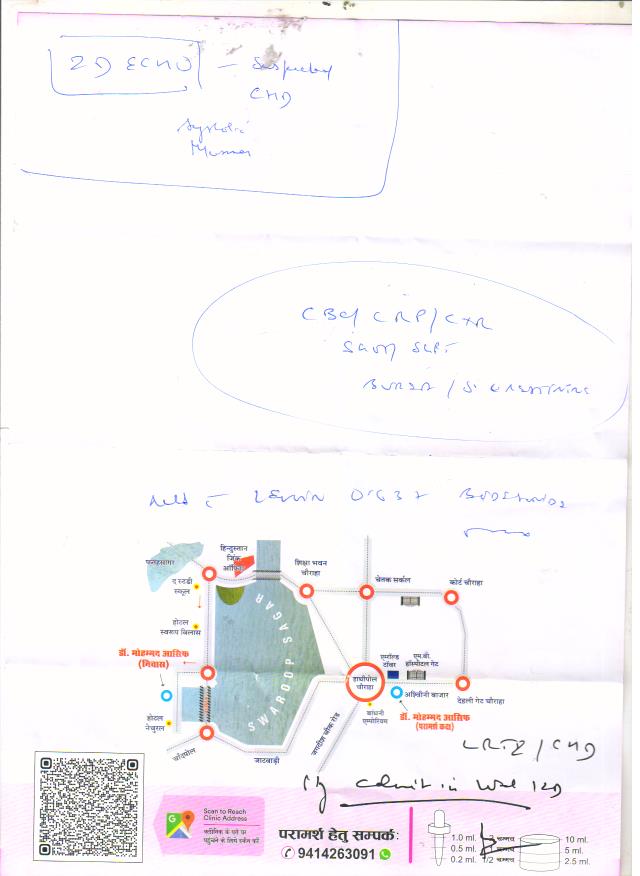 2D ECHO - Suspected
CHD
Systolic
Murmur
CBC/ CRP/ CXR
SGOT SGPT
B.UREA / S. CREATININE
Neb c LEVOLIN 0.63 + BUDESONIDE
हिन्दुस्तान
जिंक
ऑफिस
फतहसागर
शिक्षा भवन
चौराहा
चेतक सर्कल
कोर्ट चौराहा
द स्टडी
स्कूल
होटल
स्वरूप विलास
SWAROOP SAGAR
डॉ. मोहम्मद आसिफ
(निवास)
एमरॉल्ड
टॉवर
एम.बी.
हॉस्पीटल गेट
हाथीपोल
चौराहा
अश्विनी बाजार
देहली गेट चौराहा
होटल
नेचुरल
बांधनी
एम्पोरियम
डॉ. मोहम्मद आसिफ
(परामर्श कक्ष)
चाँदपोल
जाटवाड़ी
जगदीश चौक रोड
LRTI / CHD
Admit in Ward 120
Scan to Reach
Clinic Address
क्लीनिक के पते पर
पहुंचने के लिये स्केन करें
परामर्श हेतु सम्पर्क:
9414263091
1.0 ml. चम्मच 10 ml.
0.5 ml. चम्मच 5 ml.
0.2 ml. 1/2 चम्मच 2.5 ml.